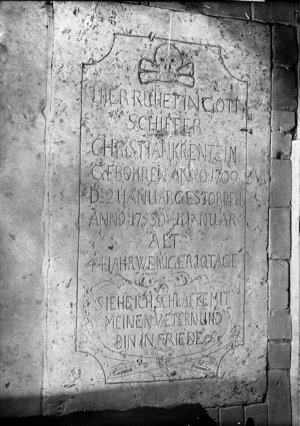 HIER RUHET IN GOTT
SCHIFFER
CHRISTIAN KRENTZIN
GEBOHREN ANNO 1700
D 21 IANUAR GESTORBEN
ANNO 1755 IANUAR
ALT
IAHR WENGER 10 TAGE
SIEHE ICH SCHLAFFE MIT
MEINEN VETERN UND
BIN IN FRIEDE